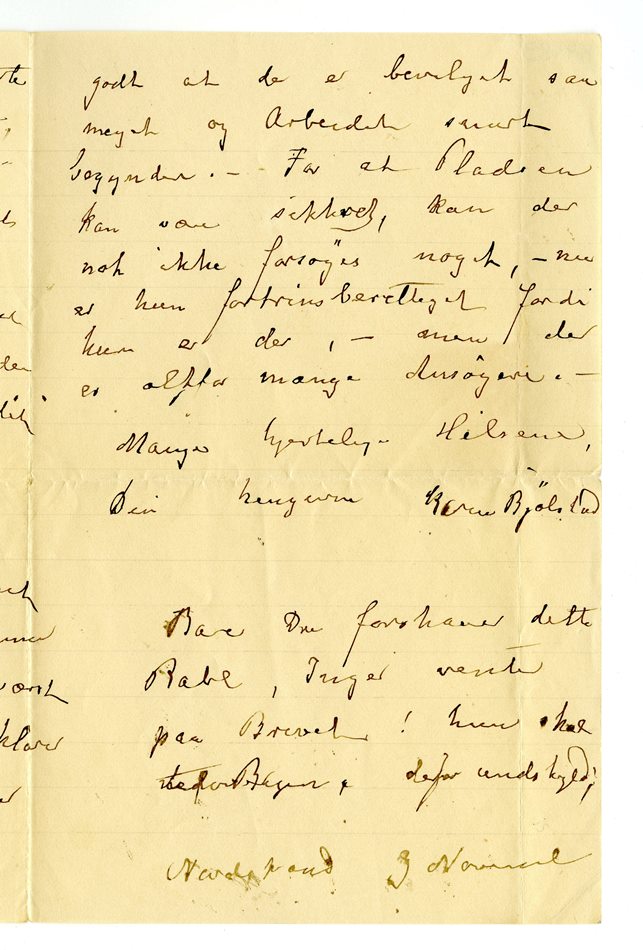 godt at de er bevilget saa
meget og Arbeidet snart
begynder. – For at Pladsen
kan være sikkret, kan der
nok ikke forsøges noget, – nu
er hun fortrinsberettiget fordi
hun er der, – men der
er altfor mange Ansøgere. –
Mange hjertelige Hilsener,
Din hengivne Karen Bjølstad
Bare Du forstaaer dette
Rabl, Inger venter
paa Brevet! hun skal
derfor undskyld;
Nordstrand 3